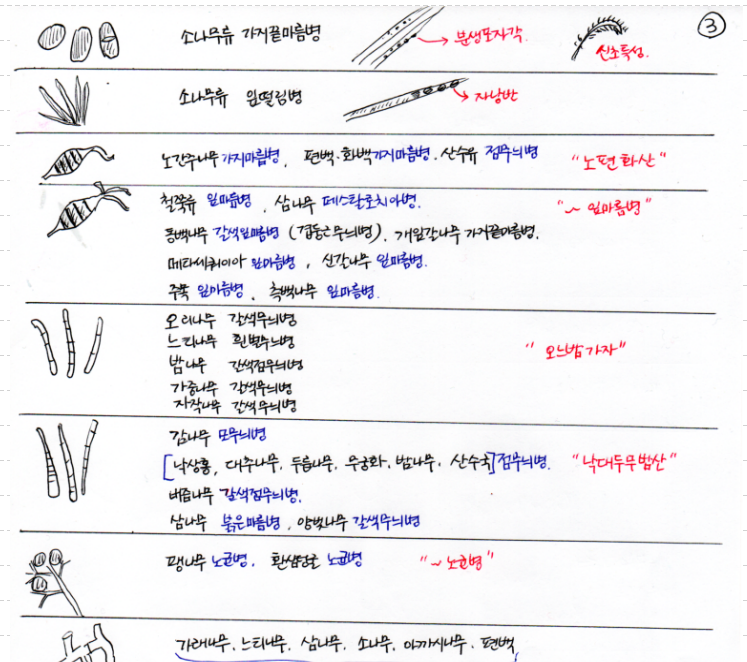 ③
소나무류 가지끝마름병 → 분생포자각. 신초특성.
소나무류 잎떨림병 → 자낭반
노간주나무 가지마름병, 편백·화백가지마름병. 산수유 점무늬병 "노편화산"
철쭉류 잎마름병, 삼나무 페스탈로치아병. "~ 잎마름병"
동백나무 갈색잎마름병 (겹둥근무늬병). 개잎갈나무 가지끝마름병.
메타세쿼이아 잎마름병, 신갈나무 잎마름병.
주목 잎마름병, 측백나무 잎마름병.
오리나무 갈색무늬병
느티나무 흰별무늬병
밤나무 갈색점무늬병 "오느밤가자"
가중나무 갈색무늬병
자작나무 갈색무늬병
감나무 모무늬병
[낙상홍, 대추나무, 두릅나무, 무궁화, 밤나무, 산수국]점무늬병. "낙대두무밤산"
버즘나무 갈색점무늬병.
삼나무 붉은마름병, 양벚나무 갈색무늬병
팽나무 노균병. 환삼덩굴 노균병 "~노균병"
가래나무. 느티나무. 삼나무. 소나무. 아까시나무. 편백